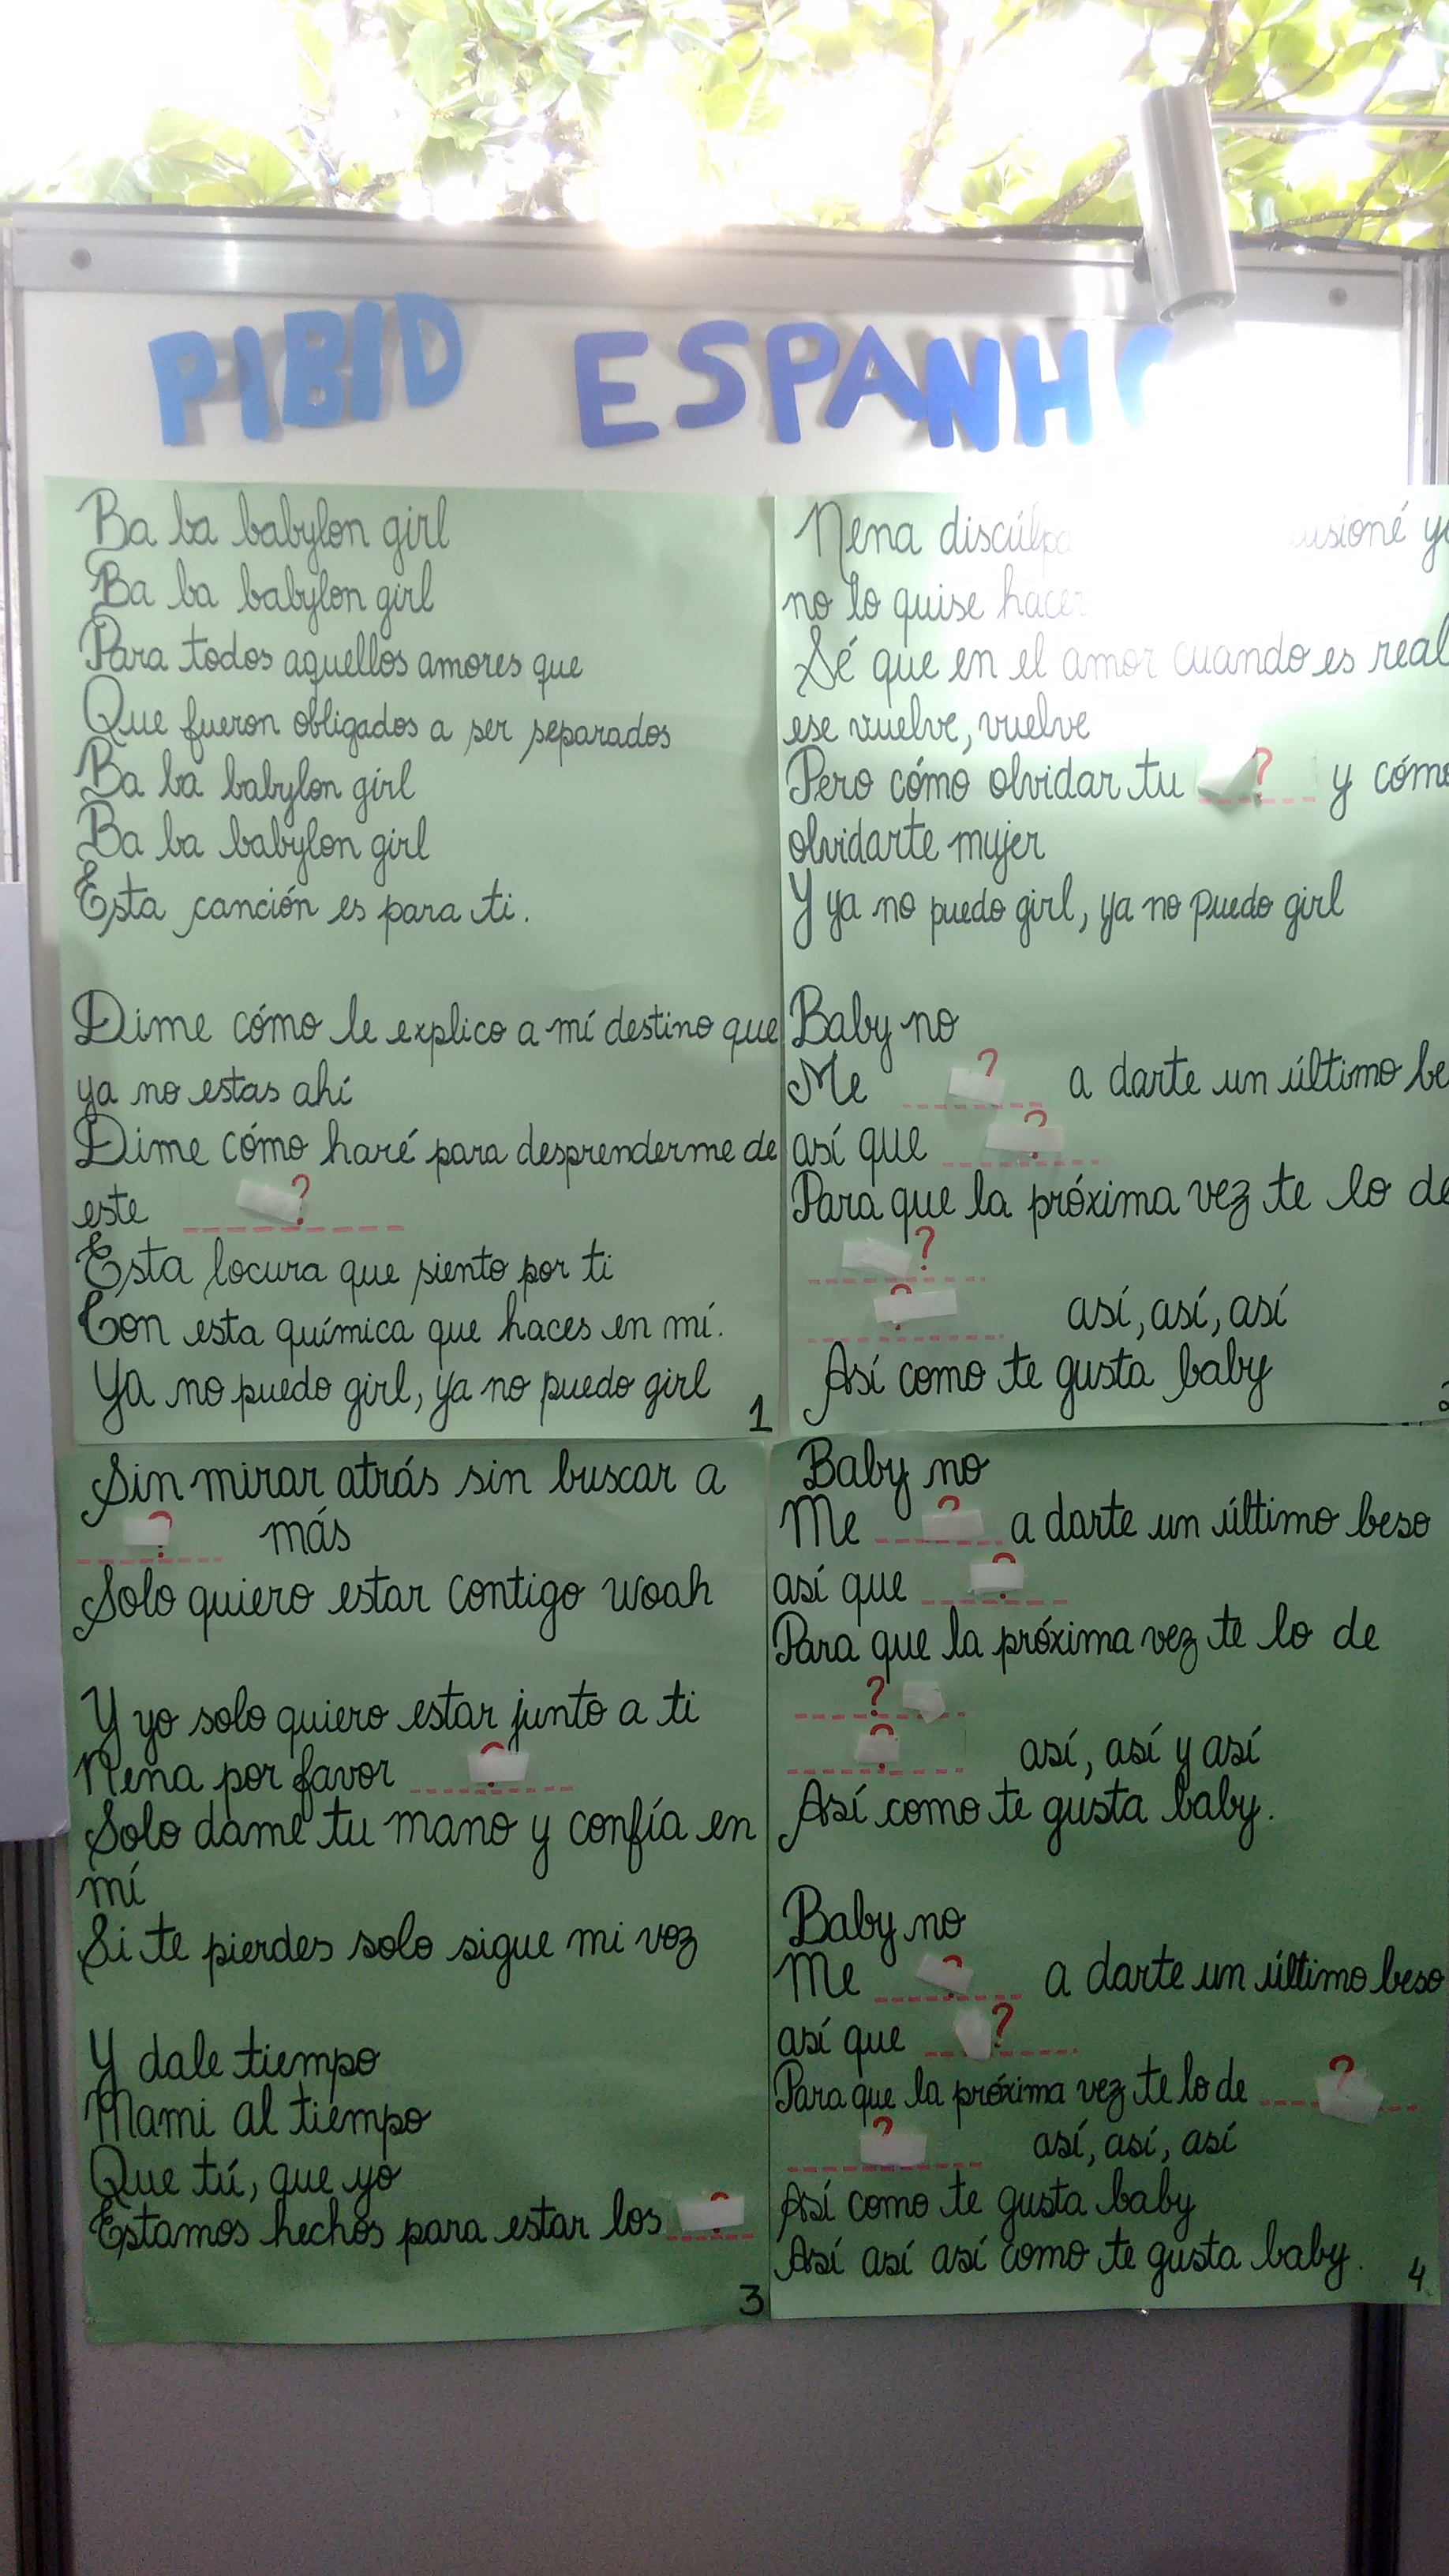 PIBID ESPANH
Ba ba babylon girl
Ba ba babylon girl
Para todos aquellos amores que
Que fueron obligados a ser separados
Ba ba babylon girl
Ba ba babylon girl
Esta canción es para ti.
Dime cómo le explico a mí destino que
ya no estas ahí
Dime cómo haré para desprenderme de
este ?
Esta locura que siento por ti
Con esta química que haces en mí.
Ya no puedo girl, ya no puedo girl
1
Nena
no lo quise hacer
Sé que en el amor cuando es real
ese vuelve, vuelve
Pero cómo olvidar tu ? y
olvidarte mujer
Y ya no puedo girl, ya no puedo girl
Baby no
Me ? a darte un último
así que ?
Para que la próxima vez te lo
?
? así, así, así
Así como te gusta baby
Sin mirar atrás sin buscar a
? más
Solo quiero estar contigo woah
Y yo solo quiero estar junto a ti
Nena por favor ?
Solo dame tu mano y confía en
mí
Si te pierdes solo sigue mi voz
Y dale tiempo
Mami al tiempo
Que tú, que yo
Estamos hechos para estar los ?
3
Baby no
Me ? a darte un último beso
así que ?
Para que la próxima vez te lo de
?
? así, así y así
Así como te gusta baby.
Baby no
Me ? a darte un último beso
así que ?
Para que la próxima vez te lo de ?
? así, así, así
Así como te gusta baby
Así así así como te gusta baby.
4